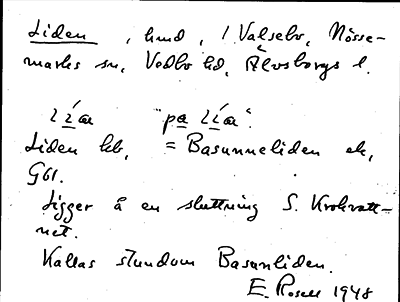 Liden, hmd, i Valselv, Nösse-
marks sn, Vedbo hd, Älvsborgs l.
"pa
Liden hb, = Basunneliden ek,
G61.
Ligger å en sluttning S. Krokvatt-
net.
Kallas stundom Basunliden.
E. Rosell 1948